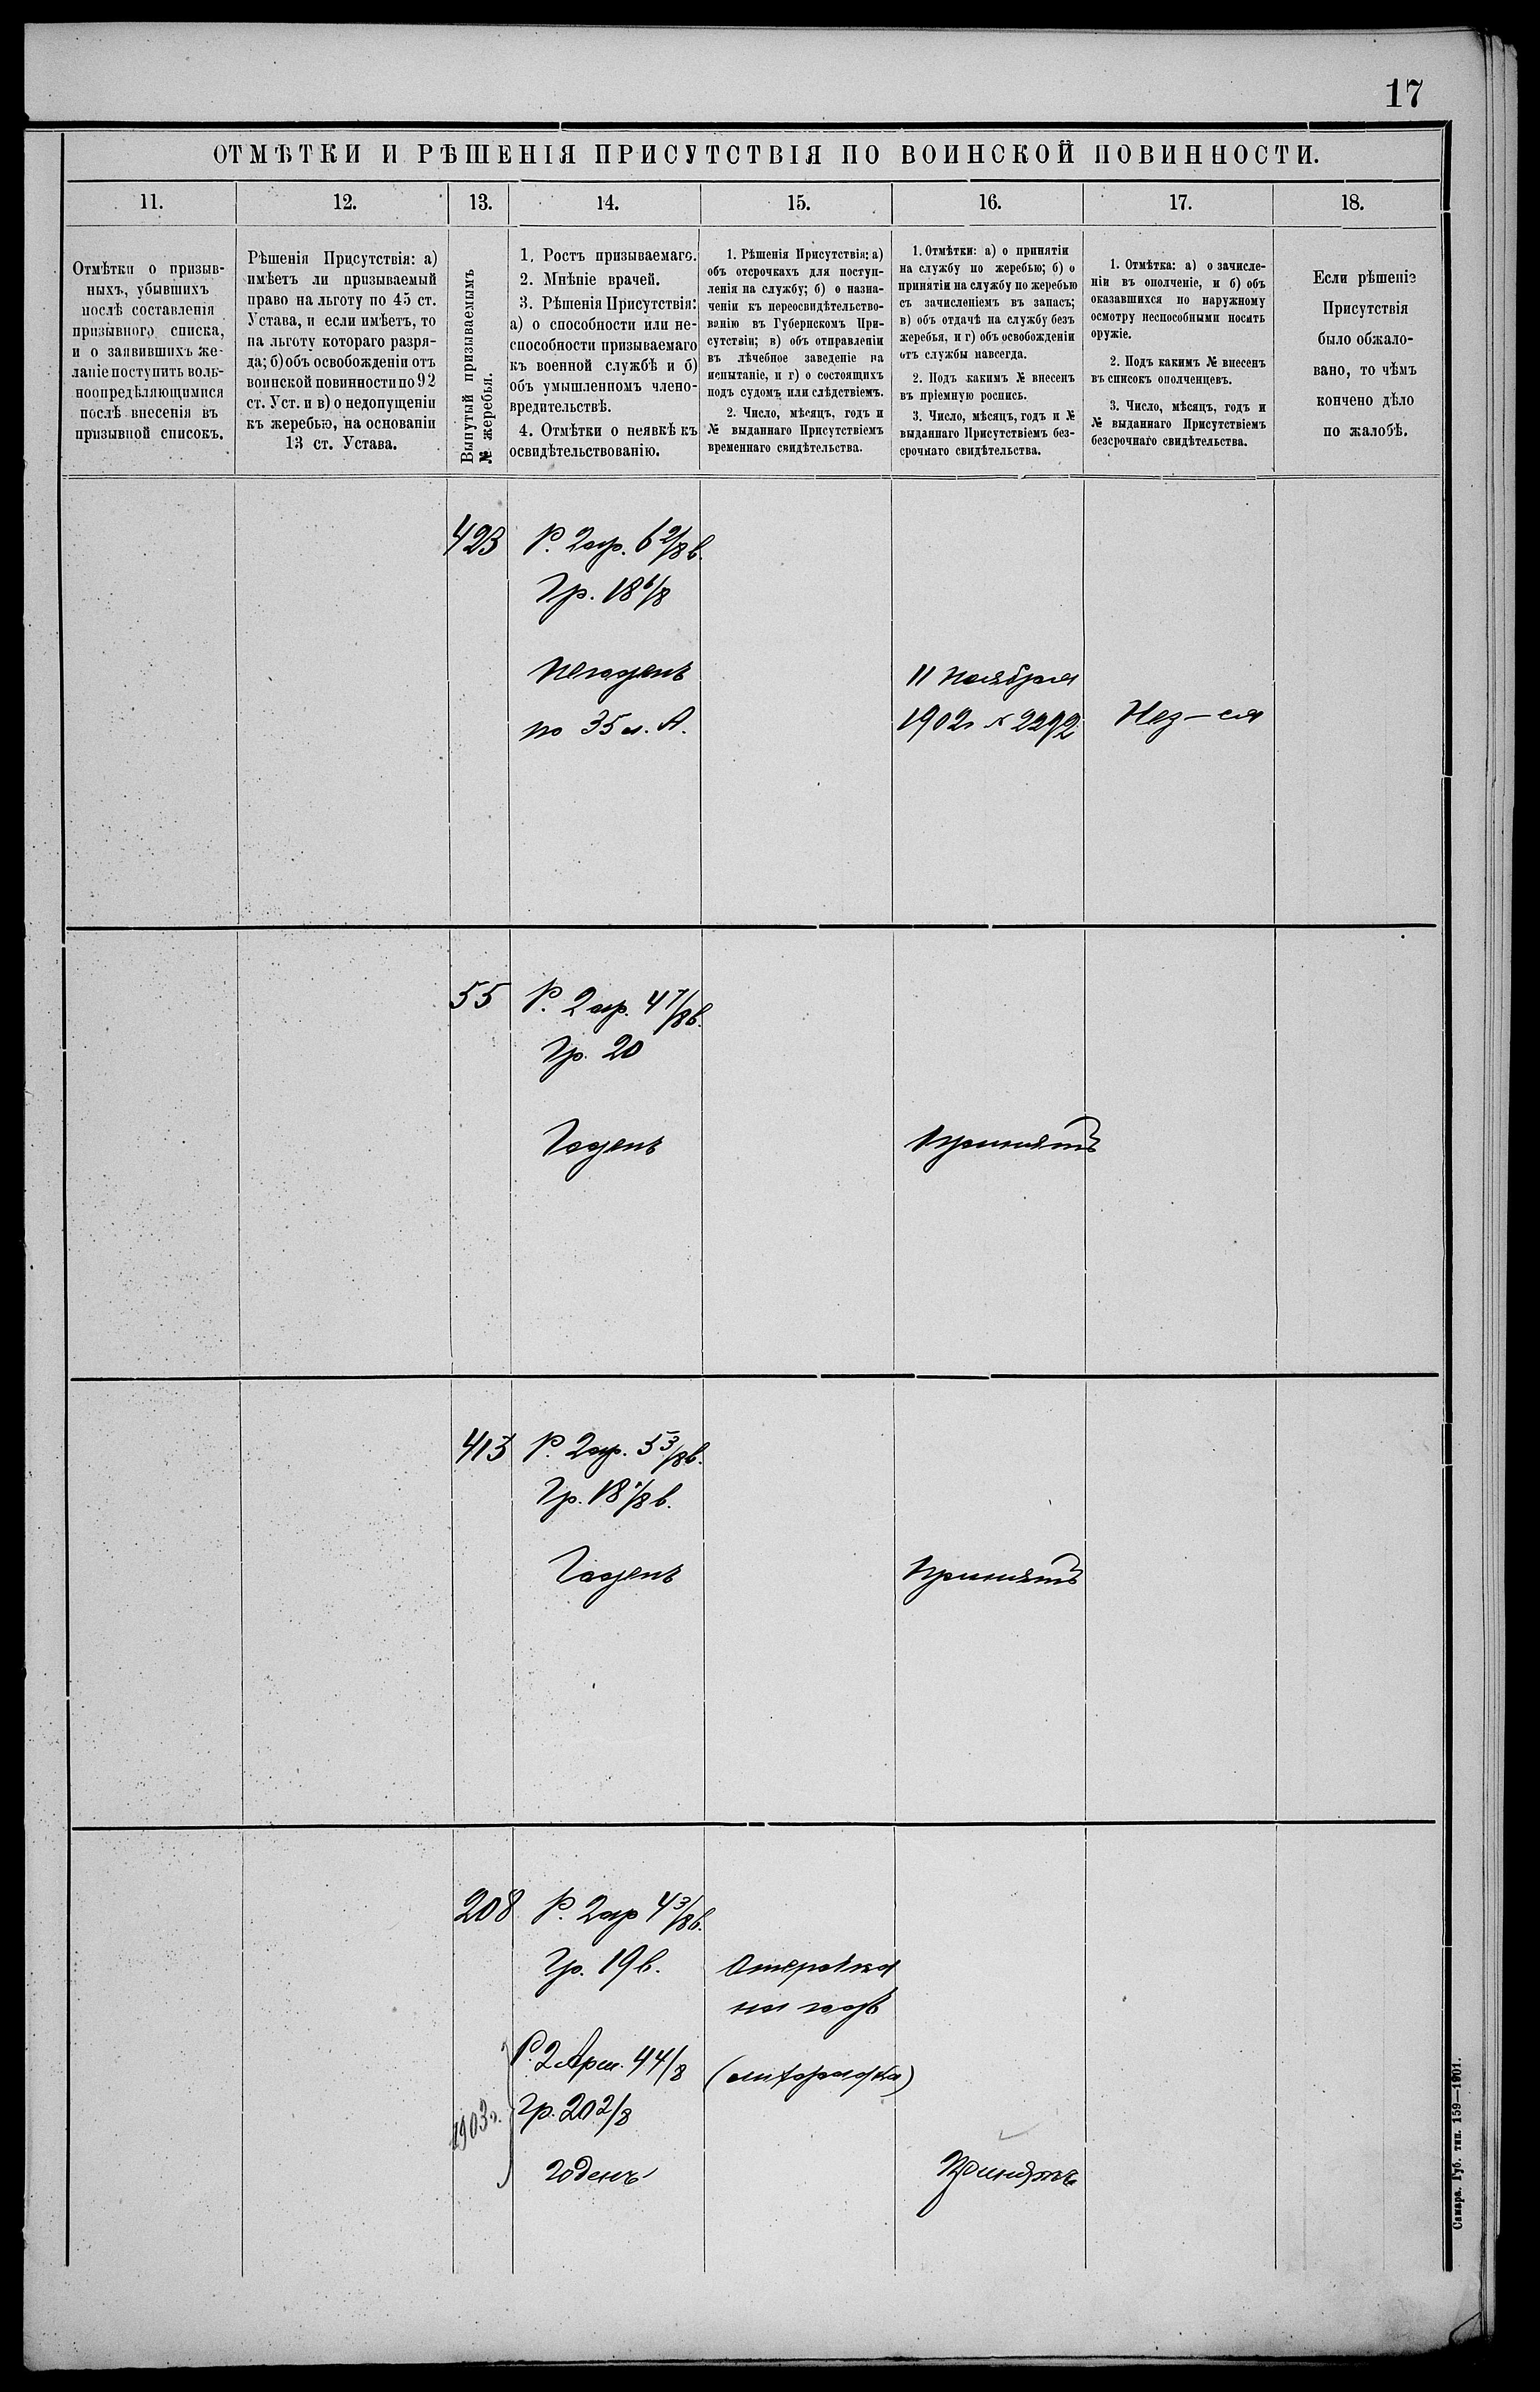 17
ОТМѢТКИ И РѢШЕНІЯ ПРИСУТСТВІЯ ПО ВОИНСКОЙ ПОВИННОСТИ.
11.
12.
13.
14.
15.
16.
17.
18.
Отмѣтки о призыв-
ныхъ, убывшихъ
послѣ составленія
призывного списка,
и о заявившихъ же-
ланіе поступить воль-
ноопредѣляющимися
послѣ внесенія въ
призывной списокъ.
Рѣшенія Присутствія: а)
имѣетъ ли призываемый
право на льготу по 45 ст.
Устава, и если имѣетъ, то
на льготу котораго разря-
да; б) объ освобожденіи отъ
воинской повинности по 92
ст. Уст. и в) о недопущеніи
къ жеребью, на основаніи
13 ст. Устава.
Вынутый призываемымъ
№ жеребья.
1. Ростъ призываемаго.
2. Мнѣніе врачей.
3. Рѣшенія Присутствія:
а) о способности или не-
способности призываемаго
къ военной службѣ и б)
объ умышленномъ члено-
вредительствѣ.
4. Отмѣтки о неявкѣ къ
освидѣтельствованію.
1. Рѣшенія Присутствія: а)
объ отсрочкахъ для поступ-
ленія на службу; б) о назна-
ченіи къ переосвидѣтельство-
ванію въ Губернскомъ При-
сутствіи; в) объ отправленіи
въ лѣчебное заведеніе на
испытаніе, и г) о состоящихъ
подъ судомъ или слѣдствіемъ.
2. Число, мѣсяцъ, годъ и
№ выданнаго Присутствіемъ
временнаго свидѣтельства.
1. Отмѣтки: а) о принятіи
на службу по жеребью; б) о
принятіи на службу по жеребью
съ зачисленіемъ въ запасъ;
в) объ отдачѣ на службу безъ
жеребья, и г) объ освобожденіи
отъ службы навсегда.
2. Подъ какимъ № внесенъ
въ пріемную роспись.
3. Число, мѣсяцъ, годъ и №
выданнаго Присутствіемъ без-
срочнаго свидѣтельства.
1. Отмѣтка: а) о зачисле-
ніи въ ополченіе, и б) объ
оказавшихся по наружному
осмотру неспособными носить
оружіе.
2. Подъ какимъ № внесенъ
въ списокъ ополченцевъ.
3. Число, мѣсяцъ, годъ и
№ выданнаго Присутствіемъ
безсрочнаго свидѣтельства.
Если рѣшеніе
Присутствія
было обжало-
вано, то чѣмъ
кончено дѣло
по жалобѣ.
423 Р. 2 ар. 6 2/8 в.
Гр. 18 6/8
Негоденъ
по 35 л. А.
11 Ноября
1902г № 2292
Нез-ся
55 Р. 2 ар. 4 7/8 в.
Гр. 20
Годенъ
Принятъ
413 Р. 2 ар. 5 3/8 в.
Гр. 18 /8 в.
Годенъ
Принятъ
208 Р. 2 ар 4 3/8 в.
Гр. 19 в.
Отсрочка
на годъ
1903 г.
Р. 2 Арш. 4 4/8
Гр. 20 2/8
годенъ
(лихорадка)
Принятъ
Самара. Губ. тип. 159—1901.